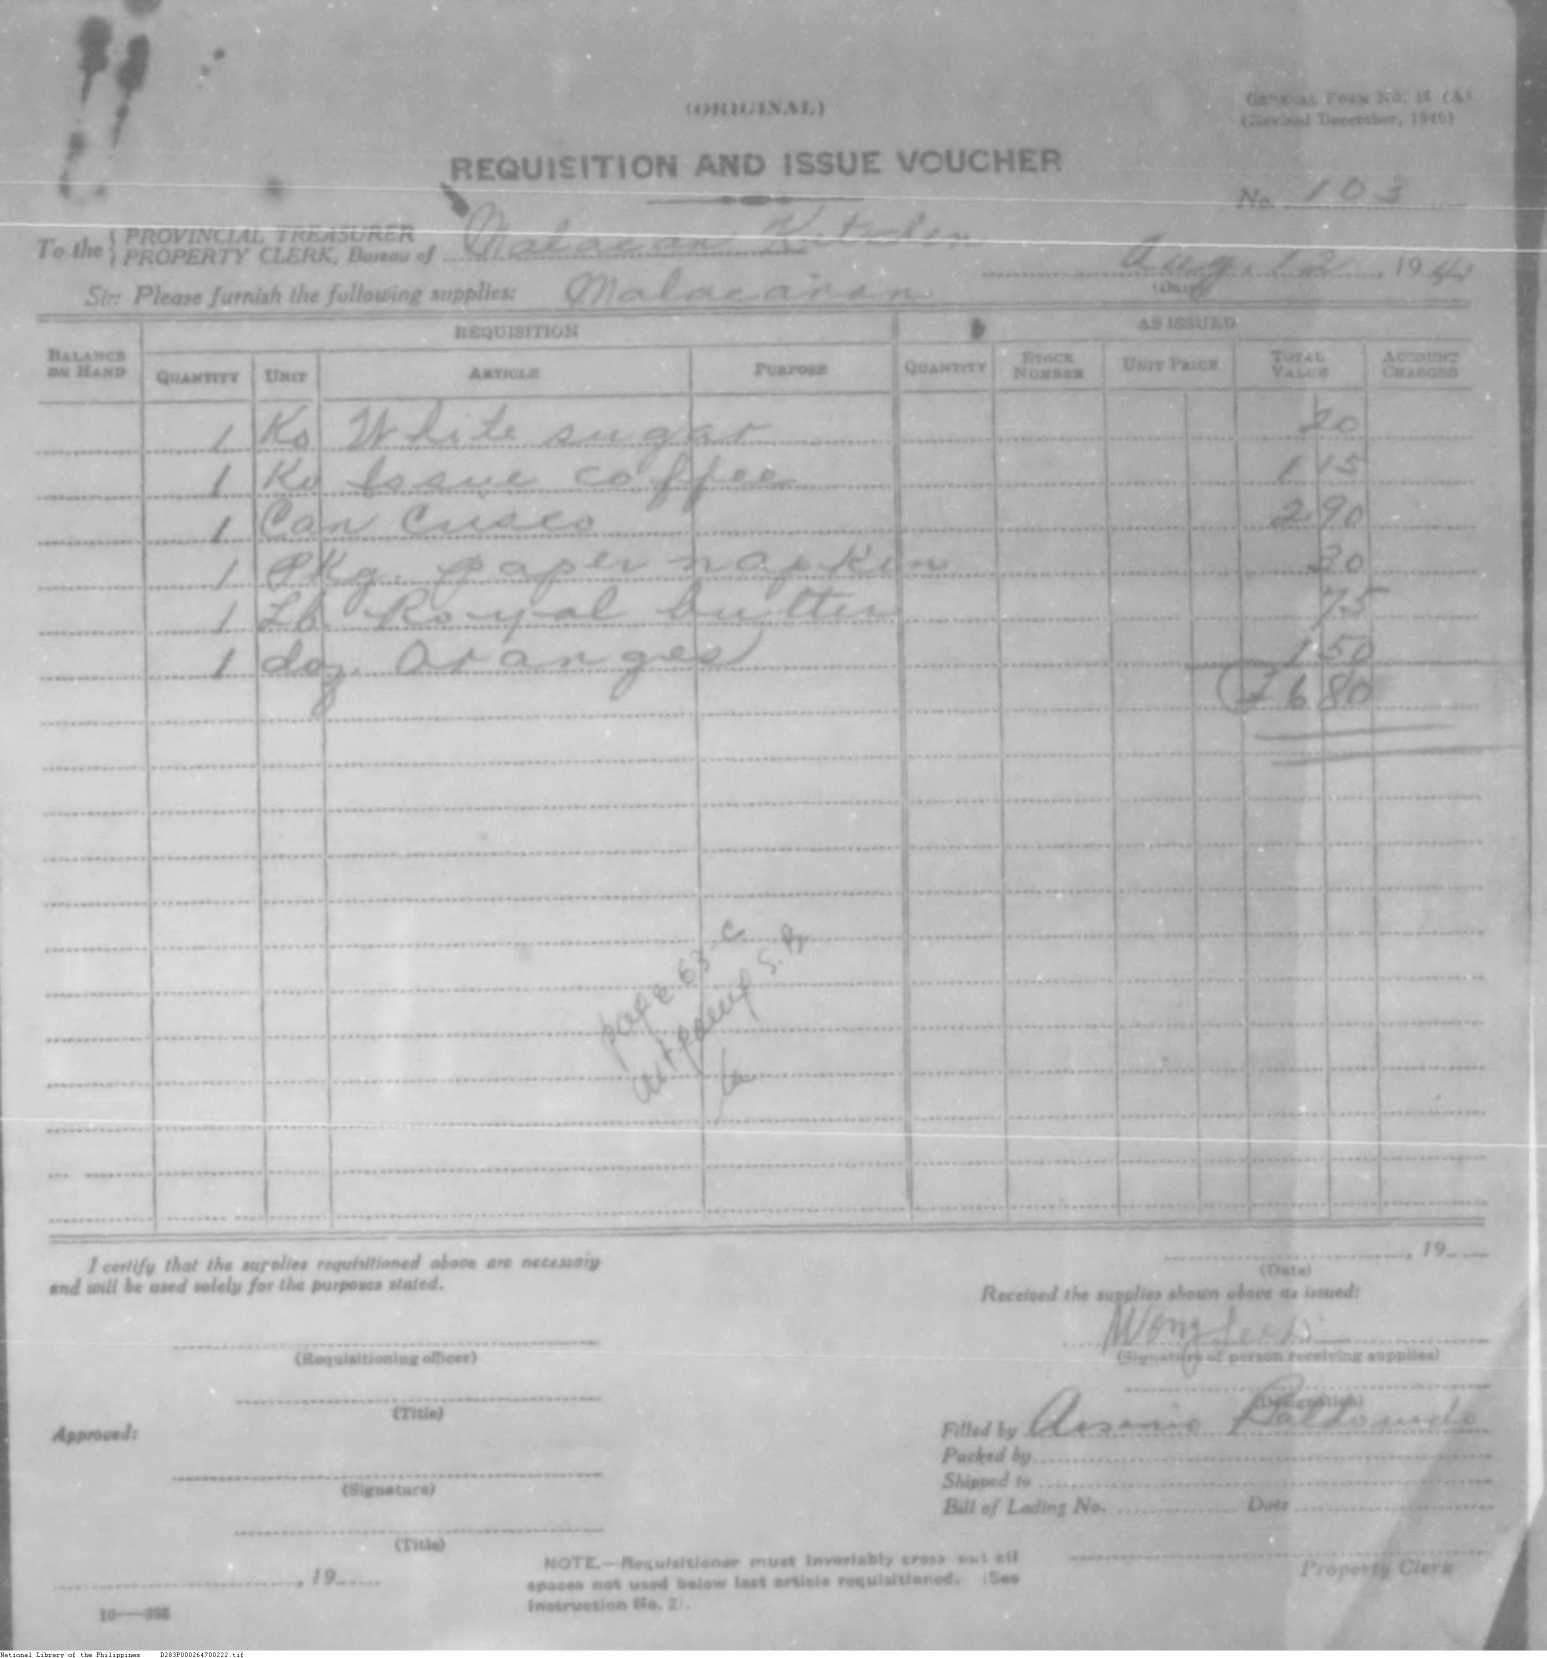 (ORIGINAL)
GENERAL FORM NO. 18 (A)
(Revised December, 1940)
REQUISITION AND ISSUE VOUCHER
No. 103
To the { PROVINCIAL TREASURER
PROPERTY CLERK, Bureau of Malacañan Kitchen
Aug. 12, 19
(Date)
Sir: Please furnish the following supplies: Malacañan
REQUISITION AS ISSUED
BALANCE ON HAND QUANTITY UNIT ARTICLE PURPOSE QUANTITY STOCK NUMBER UNIT PRICE TOTAL VALUE ACCOUNT CHARGES
1 Ko White sugar 20
1 Ko Issue coffee 1 15
1 Can Crisco 2 90
1 Pkg. paper napkin 30
1 Lb. Royal butter 75
1 doz. oranges 1 50
₱ 6 80
page 63-C
S. B.
I certify that the supplies requisitioned above are necessary
and will be used solely for the purposes stated.
, 19
(Date)
Received the supplies shown above as issued:
Wong
(Signature of person receiving supplies)
(Requisitioning officer)
(Designation)
(Title)
Filled by Arsenio Baldomedo
Approved:
Packed by
Shipped to
(Signature)
Bill of Lading No. Date
(Title)
Property Clerk
, 19
NOTE.—Requisitioner must invariably cross out all
spaces not used below last article requisitioned. (See
Instruction No. 2).
National Library of the Philippines D283P000264700222.tif